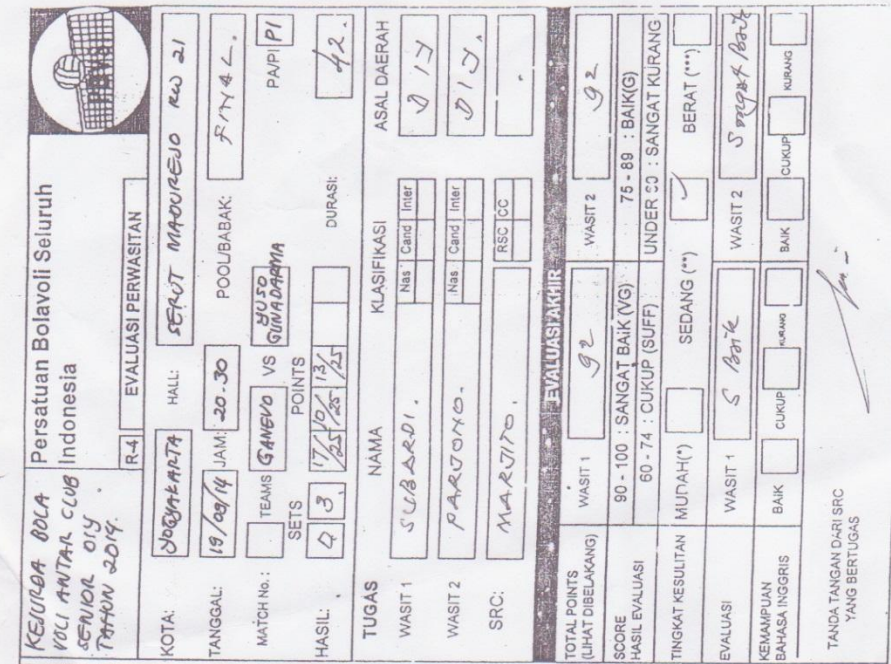 KEJURDA BOLA
VOLI ANTAR CLUB
SENIOR DIY
TAHUN 2014.
Persatuan Bolavoli Seluruh
Indonesia
PBVSI
R-4 EVALUASI PERWASITAN
KOTA: YOGYAKARTA HALL: SERUT MADUREJO RW 21
TANGGAL: 19/09/14 JAM: 20.30 POOL/BABAK: FINAL.
MATCH No.: TEAMS GANEVO VS YUSO GUNADARMA PA/PI PI
SETS POINTS
HASIL: 0 3. 17/25 10/25 13/25 DURASI: 42.
TUGAS NAMA KLASIFIKASI ASAL DAERAH
WASIT 1 SUBARDI. Nas Cand Inter DIY
WASIT 2 PARJONO. Nas Cand Inter DIY.
SRC: MARJITO. RSC CC
EVALUASI AKHIR
TOTAL POINTS
(LIHAT DIBELAKANG) WASIT 1 92 WASIT 2 92
SCORE
HASIL EVALUASI
90 - 100 : SANGAT BAIK (VG) 75 - 89 : BAIK(G)
60 - 74 : CUKUP (SUFF) UNDER 60 : SANGAT KURANG
TINGKAT KESULITAN MUDAH(*) SEDANG (**) ✓ BERAT (***)
EVALUASI WASIT 1 S Baik WASIT 2 Sangat Baik
KEMAMPUAN
BAHASA INGGRIS BAIK CUKUP KURANG BAIK CUKUP KURANG
TANDA TANGAN DARI SRC
YANG BERTUGAS